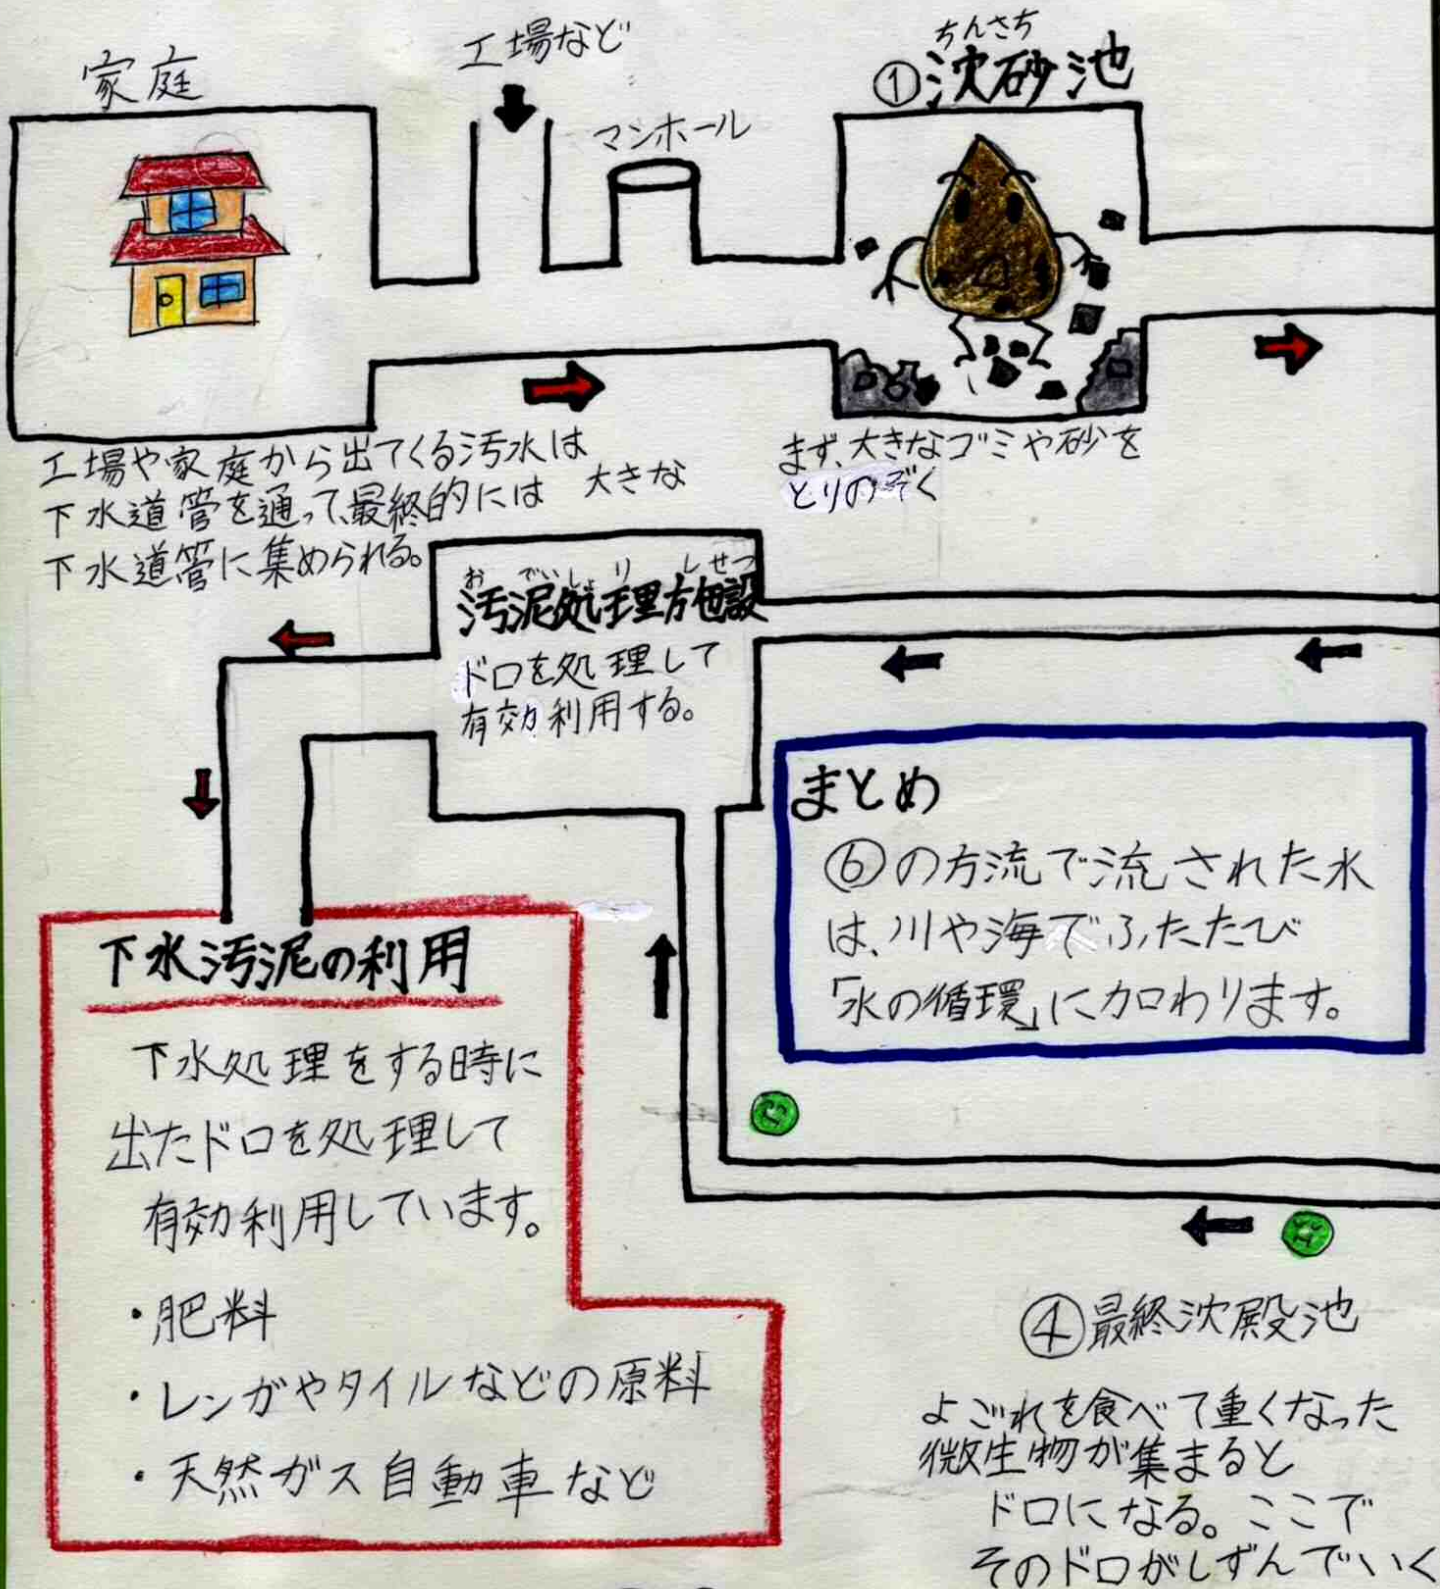 家庭
工場など
マンホール
ちんさち
①沈砂池
工場や家庭から出てくる汚水は
下水道管を通って、最終的には 大きな
下水道管に集められる。
まず、大きなゴミや砂を
とりのぞく
おでいしょりしせつ
汚泥処理施設
ドロを処理して
有効利用する。
まとめ
⑥の方流で流された水
は、川や海でふたたび
「水の循環」に加わります。
下水汚泥の利用
下水処理をする時に
出たドロを処理して
有効利用しています。
・肥料
・レンガやタイルなどの原料
・天然ガス自動車など
④最終沈殿池
よごれを食べて重くなった
微生物が集まると
ドロになる。ここで
そのドロがしずんでいく